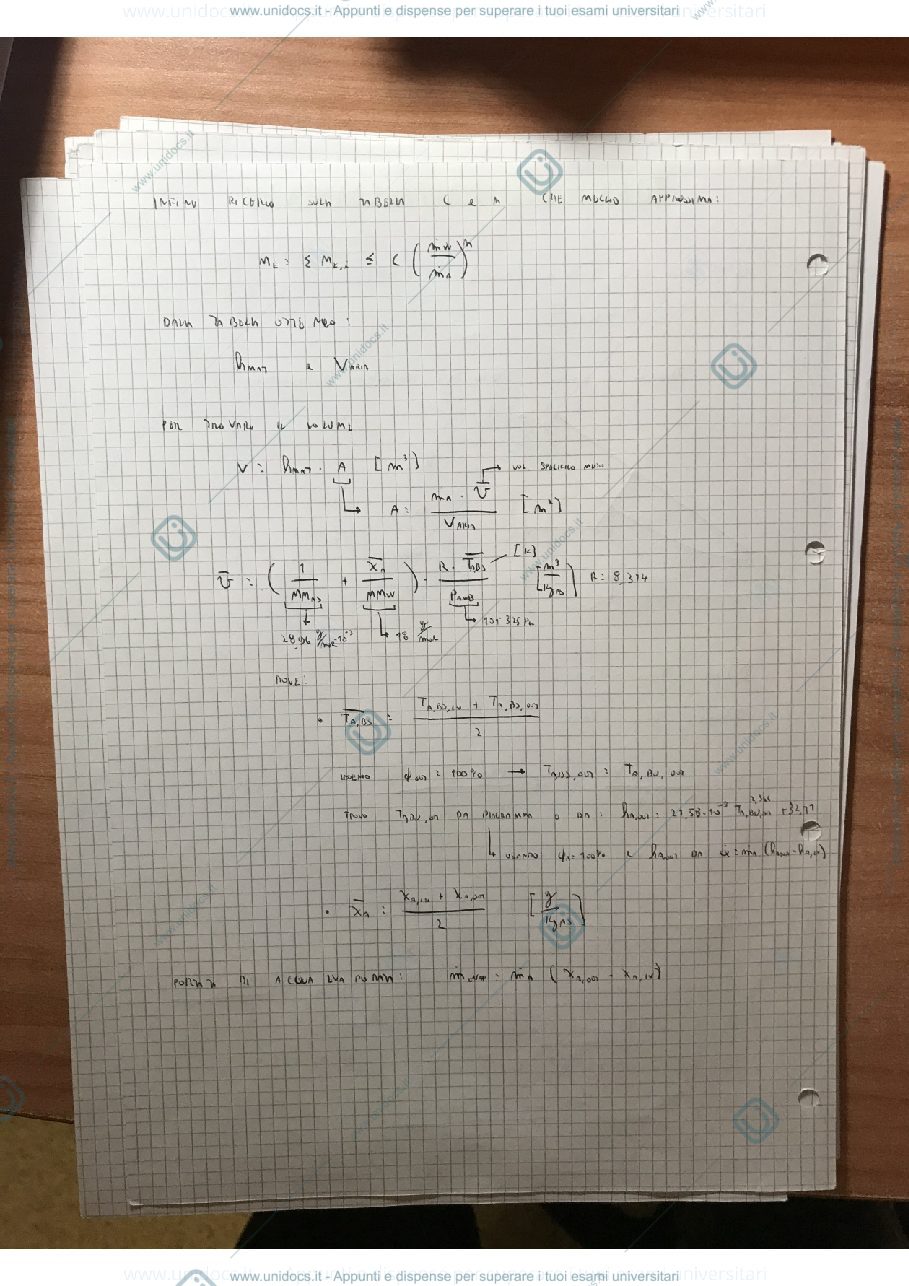 www.unidocs.it - Appunti e dispense per superare i tuoi esami universitari
INFINE RICERCO SULLA TABELLA C e n CHE MEGLIO APPROSSIMA:
M_c = Σ M_c,i ≤ C (ṁ_W / ṁ_A)^n
DALLA TABELLA OTTENGO:
h_MAT e V_ARIA
PER TROVARE IL VOLUME
V = h_MAT · A [m³]
→ VOL SPECIFICO MEDIO
A = ṁ_A · v̄ / V_ARIA [m²]
v̄ = (1 / MM_AS + x̄_A / MM_W) · R · T̄_A,BS / P_AMB [m³ / kg_AS] R = 8,314
[K]
28,96 g/mol · 10⁻³
18 g/mol
101 325 Pa
DOVE:
• T̄_A,BS = (T_A,BS,IN + T_A,BS,OUT) / 2
φ_OUT = 100% → T_A,BS,OUT = T_A,BU,OUT
TROVO T_A,BU,OUT DA DIAGRAMMA O DA: h_A,OUT = 21,58 · 10⁻³ T_A,BU,OUT + 32,11
USANDO φ_A = 100% e h_A,OUT DA Q̇ = ṁ_A (h_A,OUT - h_A,IN)
• x̄_A = (x_A,IN + x_A,OUT) / 2 [g / kg_AS]
PORTATA DI ACQUA EVAPORATA: ṁ_EVAP = ṁ_A (x_A,OUT - x_A,IN)
www.unidocs.it - Appunti e dispense per superare i tuoi esami universitari